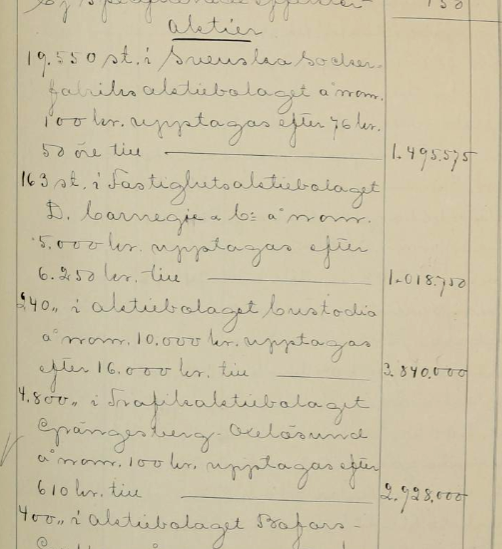 Aktier
19.550 st. i Svenska Socker-
fabriks aktiebolaget å nom.
100 kr. upptagas efter 76 kr.
50 öre till 1.495.575
163 st. i Fastighetsaktiebolaget
D. Carnegie & C:o å nom.
5.000 kr. upptagas efter
6.250 kr. till 1.018.750
240 „ i aktiebolaget Custodia
å nom. 10.000 kr. upptagas
efter 16.000 kr. till 3.840.000
4.800 „ i Trafikaktiebolaget
Grängesberg-Oxelösund
å nom. 100 kr. upptagas efter
610 kr. till 2.928.000
400 „ i aktiebolaget Bofors-